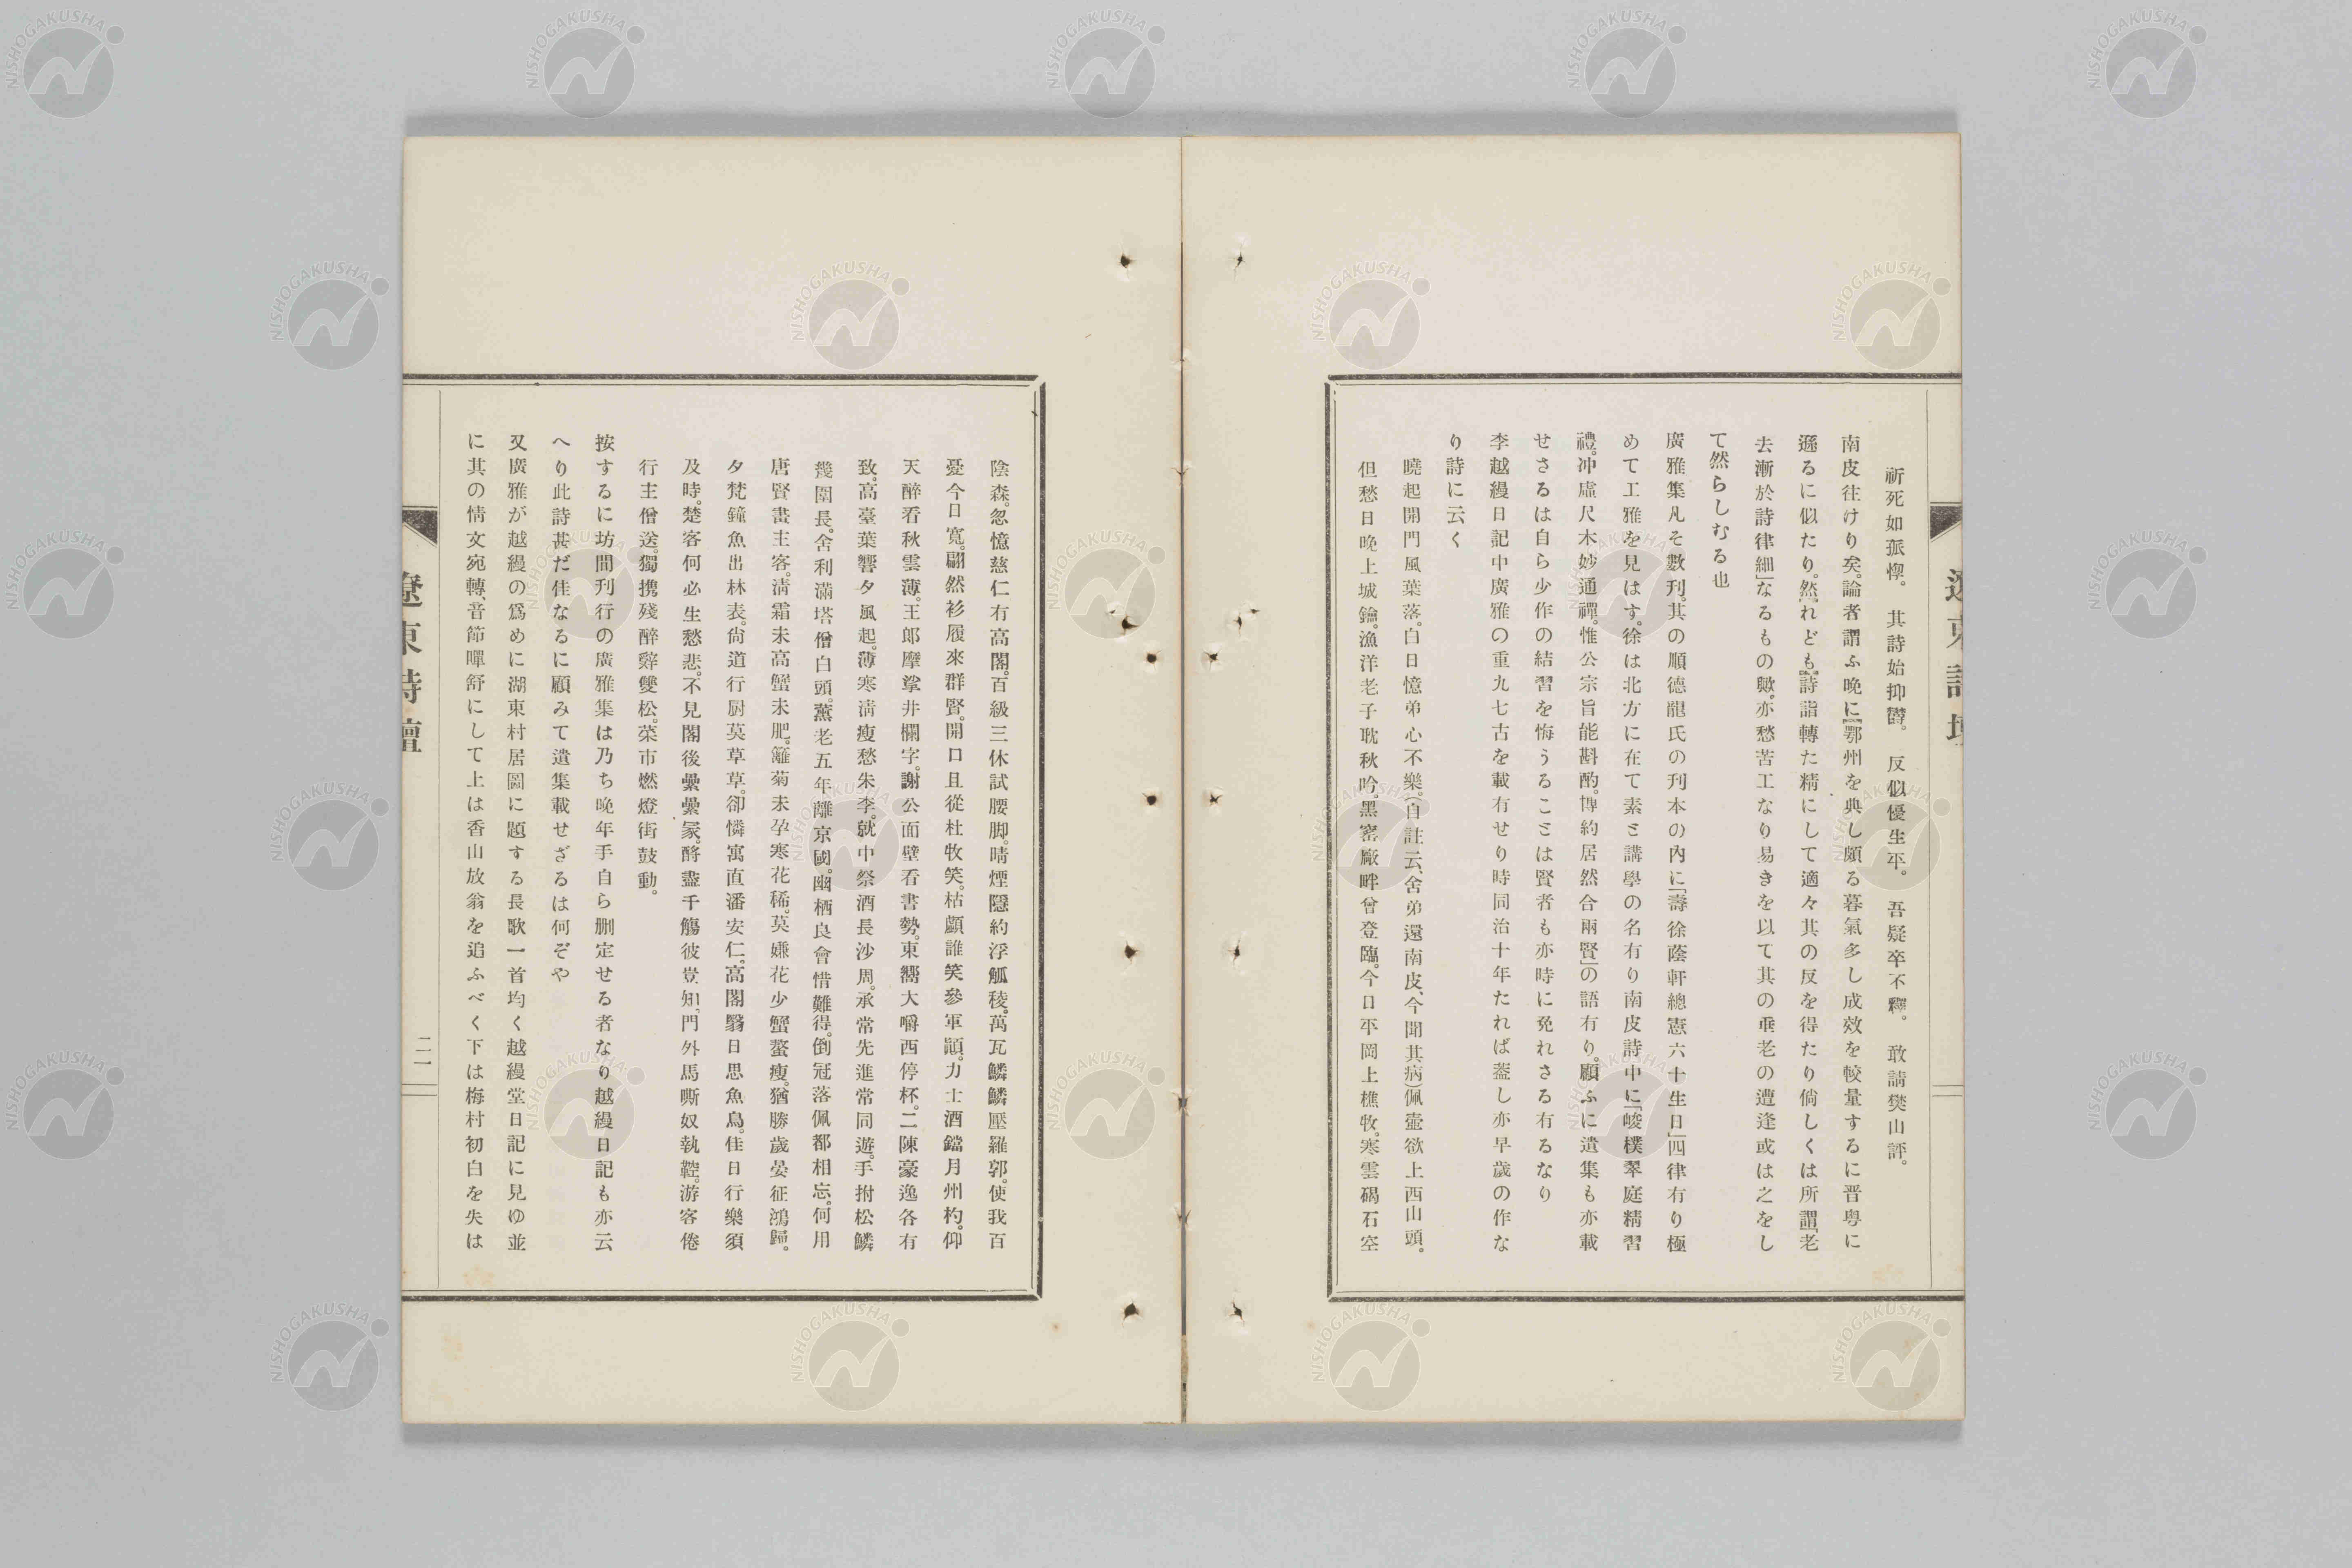 祈死如孤惸。其詩始抑鬱。反似優生平。吾疑卒不釋。敢請樊山評。
南皮往けり矣。論者謂ふ晩に「鄂州を典し頗る暮氣多し成效を較量するに晋粤に
遜るに似たり。然」れども「詩詣轉た精にして適々其の反を得たり倘しくは所謂「老
去漸於詩律細」なるもの歟。亦愁苦工なり易きを以て其の垂老の遭逢或は之をし
て然らしむる也
廣雅集凡そ數刊。其の順德龍氏の刊本の內に「壽徐蔭軒總憲六十生日」四律有り極
めて工雅を見はす。徐は北方に在て素ミ講學の名有り南皮詩中に「峻樸翠庭精習
禮。冲虛尺木妙通禪。惟公宗旨能斟酌。博約居然合兩賢」の語有り。願ふに遺集も亦載
せさるは自ら少作の結習を悔うるこミは賢者も亦時に免れさる有るなり
李越縵日記中廣雅の重九七古を載有せり時同治十年たれば葢し亦早歲の作な
り詩に云く
曉起開門風葉落。白日憶弟心不樂。(自註云、舍弟還南皮、今聞其病)佩壺欲上西山頭。
但愁日晩上城鑰。漁洋老子耽秋吟。黑窰廠畔曾登臨。今日平岡上樵牧。寒雲碣石空
陰森。忽憶慈仁有高閣。百級三休試腰脚。晴煙隱約浮觚稜。萬瓦鱗鱗壓羅郭。使我百
憂今日寬。翩然衫履來群賢。開口且從杜牧笑。枯顱誰笑參軍顚。力士酒鐺月州杓。仰
天醉看秋雲薄。王郎摩挲井欄字。謝公面壁看書勢。東嚮大嚼西停杯。二陳豪逸各有
致。高臺葉響夕風起。薄寒淸瘦愁朱李。就中祭酒長沙周。承常先進常同遊。手拊松鱗
幾圍長。舍利滿塔僧白頭。薰老五年離京國。幽栖良會惜難得。倒冠落佩都相忘。何用
唐賢畫主客。淸霜未高蟹未肥。籬菊未孕寒花稀。莫嫌花少蟹螯瘦。猶勝歲晏征鴻歸。
夕梵鐘魚出林表。尙道行厨莫草草。卻憐寓直潘安仁。高閣翳日思魚鳥。佳日行樂須
及時。楚客何必生愁悲。不見閣後纍纍冢。酹盡千觴彼豈知。「門外馬嘶奴執鞚。游客倦
行主僧送。獨携殘醉辭雙松。菜市燃燈街鼓動。
按するに坊間刊行の廣雅集は乃ち晩年手自ら删定せる者なり越縵日記も亦云
へり此詩甚だ佳なるに顧みて遺集載せざるは何ぞや
又廣雅が越縵の爲めに湖東村居圖に題する長歌一首均く越縵堂日記に見ゆ並
に其の情文宛轉、音節嘽舒にして上は香山放翁を追ふべく下は梅村初白を失は
遼東詩壇
二一